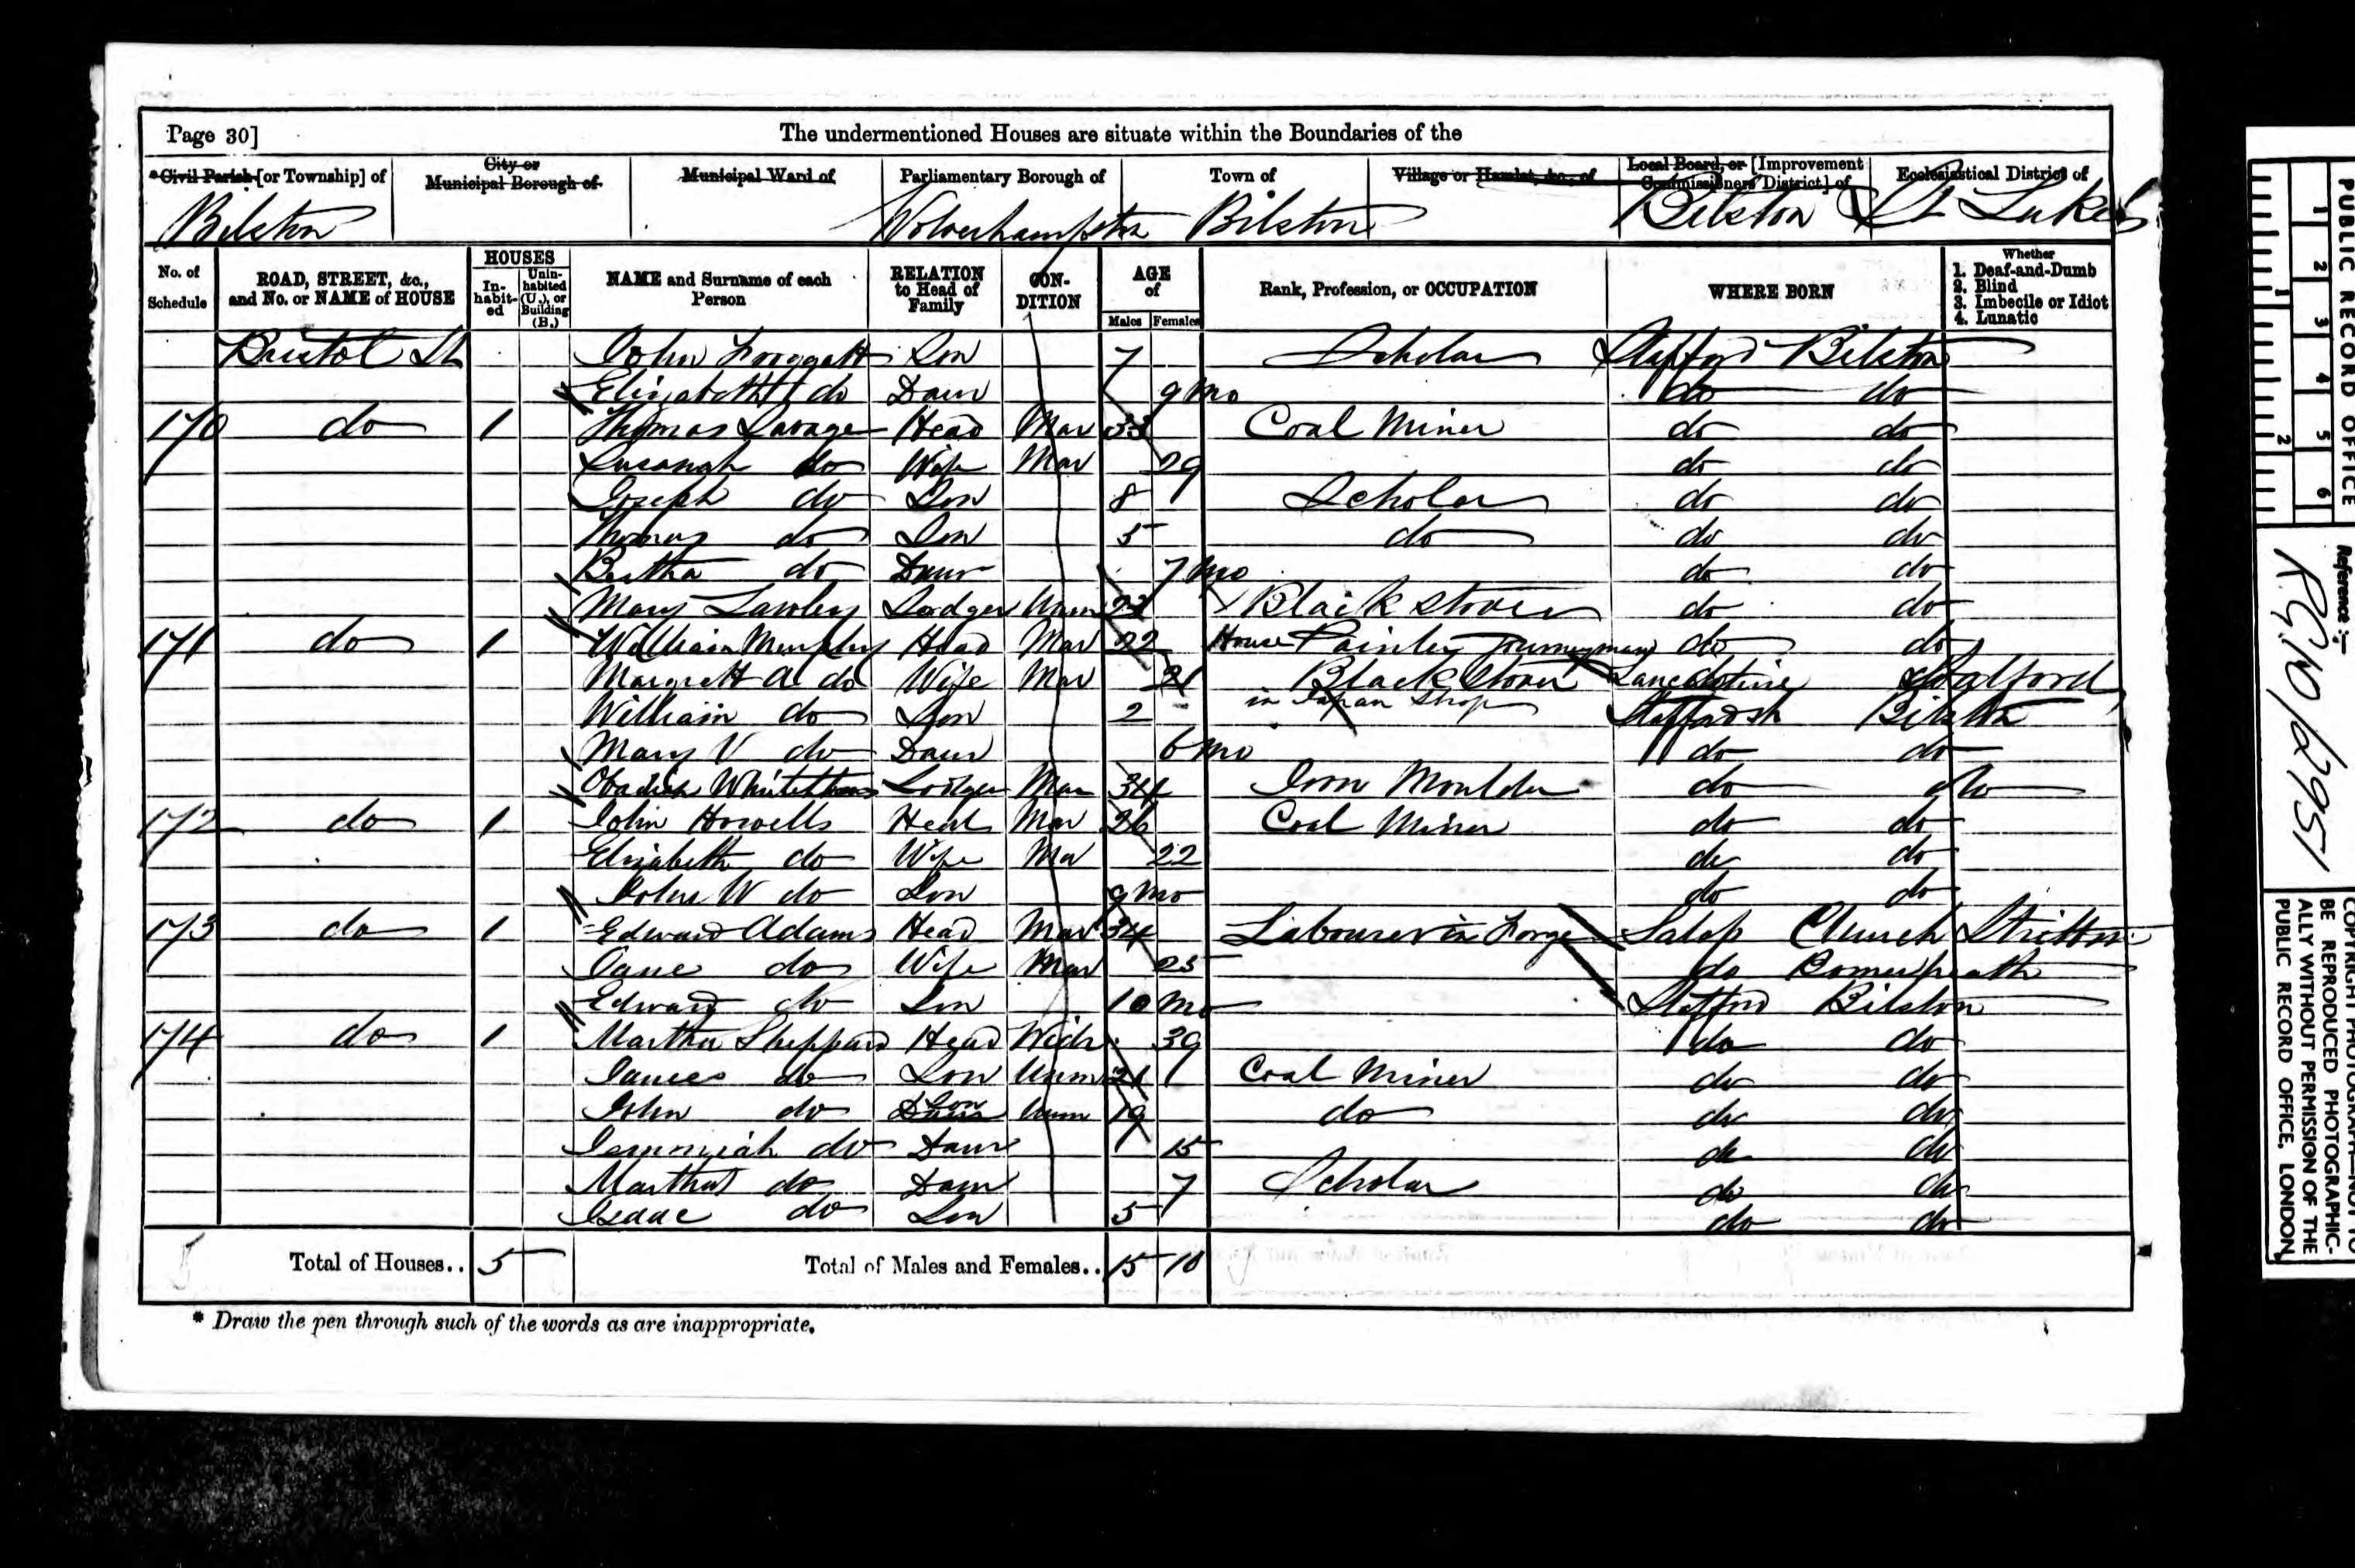 Page 30] The undermentioned Houses are situate within the Boundaries of the
*Civil Parish [or Township] of City or Municipal Borough of Municipal Ward of Parliamentary Borough of Town of Village or Hamlet, &c., of Local Board, or [Improvement Commissioners District] of Ecclesiastical District of
Bilston Wolverhampton Bilston Bilston St Lukes
No. of Schedule ROAD, STREET, &c., and No. or NAME of HOUSE HOUSES In-habit-ed Unin-habited (U.), or Building (B.) NAME and Surname of each Person RELATION to Head of Family CON-DITION AGE of Males Females Rank, Profession, or OCCUPATION WHERE BORN Whether 1. Deaf-and-Dumb 2. Blind 3. Imbecile or Idiot 4. Lunatic
Bristol St John Froggatt Son 7 Scholar Stafford Bilston
Elizabeth do Daur 9 mo do do
170 do 1 Thomas Savage Head Mar 33 Coal Miner do do
Susanah do Wife Mar 29 do do
Joseph do Son 8 Scholar do do
Thomas do Son 5 do do do
Bertha do Daur 7 mo do do
Mary Lawley Lodger Unm Black Stover do do
171 do 1 William Murphy Head Mar 22 House Painter Journeyman do do
Margrett A do Wife Mar 21 Black Stover Lancashire Salford
in Japan Shop
William do Son 2 Staffordsh Bilston
Mary V do Daur 6 mo do do
Obadiah Lodger Mar 34 Iron Moulder do do
172 do 1 John Howells Head Mar 26 Coal Miner do do
Elizabeth do Wife Mar 22 do do
John W do Son 9 mo do do
173 do 1 Edward Adams Head Mar 34 Labourer in Forge Salop Church Stretton
Jane do Wife Mar 25 do Bomerheath
Edward do Son 10 mo Stafford Bilston
174 do 1 Martha Sheppard Head Widr 39 do do
James do Son Unm 21 Coal Miner do do
John do Son Unm 19 do do do
Jemmiah do Daur 15 do do
Martha do Daur 7 Scholar do do
Isaac do Son 5 do do
Total of Houses.. 5 Total of Males and Females.. 15 10
* Draw the pen through such of the words as are inappropriate.
PUBLIC RECORD OFFICE
1 2 3 4 5 6
1 2
Reference:-
R.G.10/2951
COPYRIGHT PHOTOGRAPH—NOT TO
BE REPRODUCED PHOTOGRAPHIC-
ALLY WITHOUT PERMISSION OF THE
PUBLIC RECORD OFFICE, LONDON